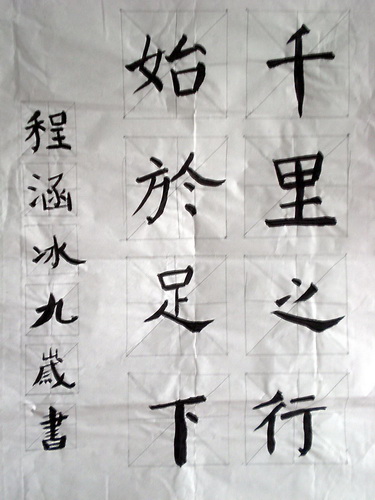 千里之行
始於足下
程涵冰九歲書